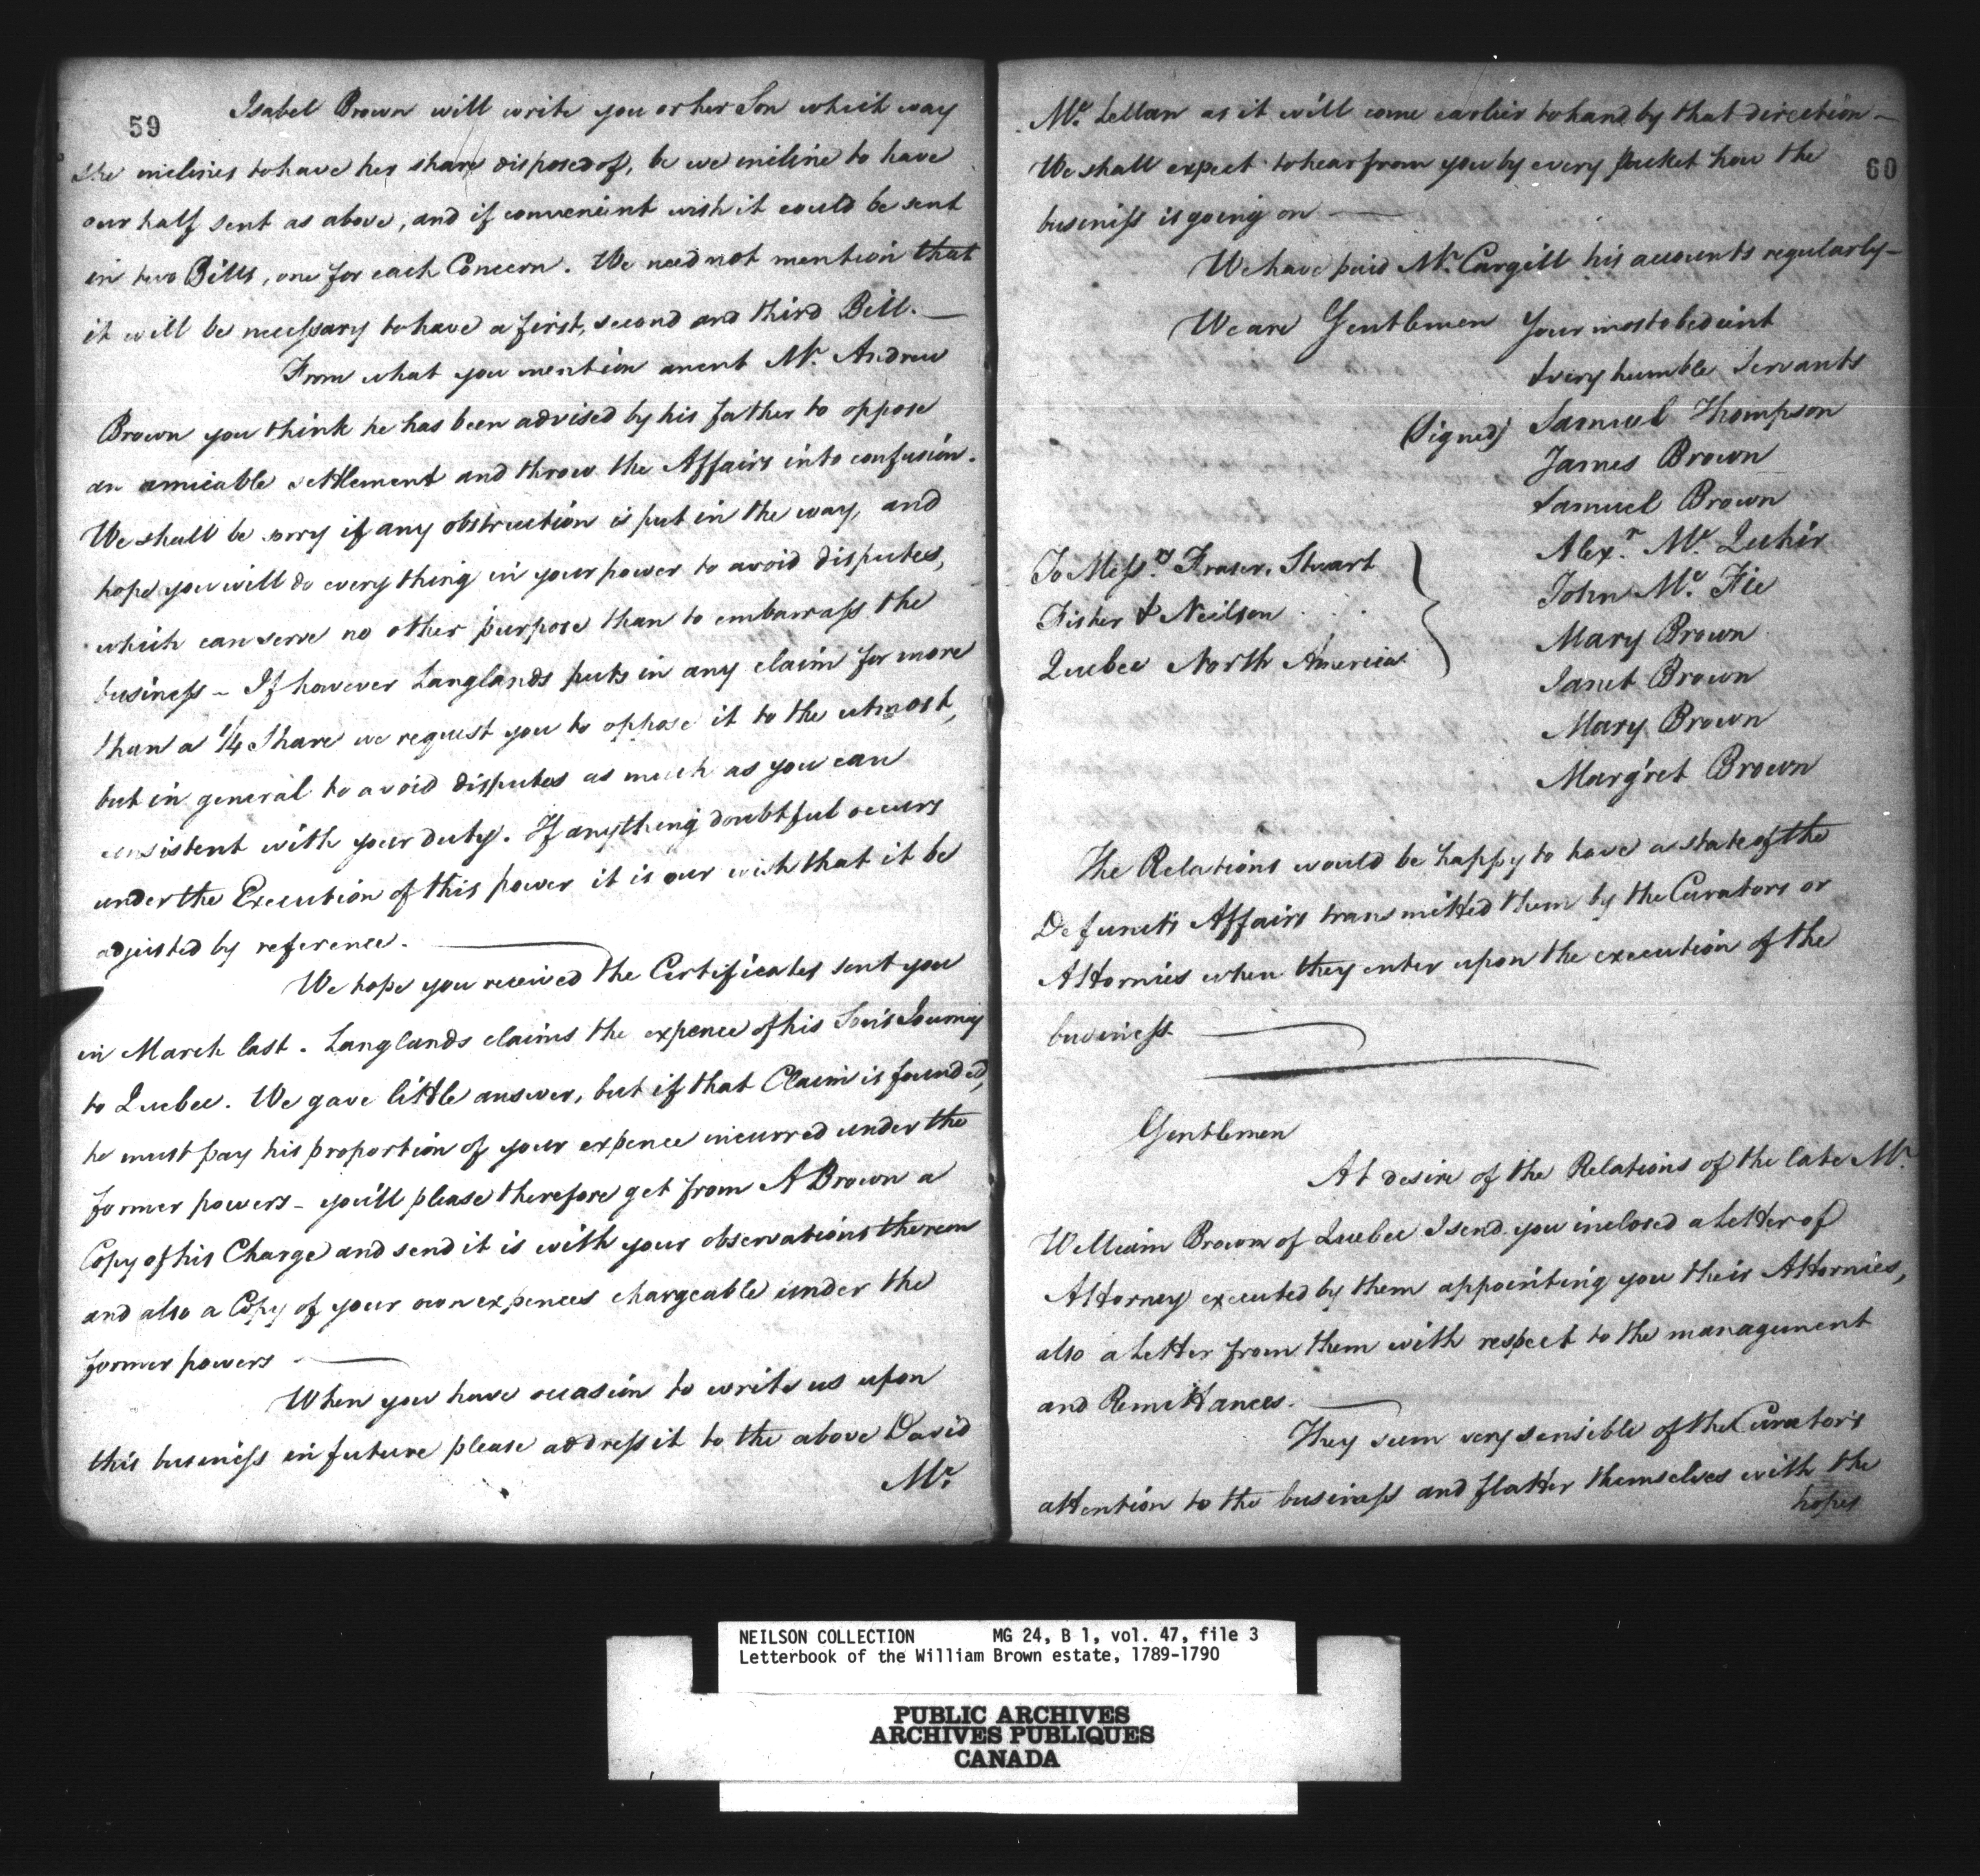 59
Isabel Brown will write you or her Son which way
she inclines to have her share disposed of, be we incline to have
our half sent as above, and if convenient wish it could be sent
in two Bills, one for each Concern. We need not mention that
it will be necessary to have a first, second and third Bill. —
From what you mention anent Mr. Andrew
Brown you think he has been advised by his father to oppose
an amicable settlement and throw the Affairs into confusion.
We shall be sorry if any obstruction is put in the way, and
hope you will do every thing in your power to avoid disputes,
which can serve no other purpose than to embarrass the
business – If however Langlands puts in any claim for more
than a 1/4 Share we request you to oppose it to the utmost,
but in general to avoid disputes as much as you can
consistent with your duty. If anything doubtful occurs
under the Execution of this power it is our wish that it be
adjusted by reference. —
We hope you received the Certificates sent you
in March last. Langlands claims the expence of his Son's Journey
to Quebec. We gave little answer, but if that Claim is founded,
he must pay his proportion of your expence incurred under the
former powers – you'll please therefore get from A Brown a
Copy of his Charge and send it is with your observations thereon
and also a Copy of your own expences chargeable under the
former powers —
When you have occasion to write us upon
this business in future please address it to the above David
Mc.
60
Mc. Lellan as it will come earlier to hand by that direction –
We shall expect to hear from you by every packet how the
business is going on —
We have paid Mr. Cargill his accounts regularly –
We are Gentlemen Your most obedient
& very humble Servants
(Signed) Samuel Thompson
James Brown
Samuel Brown
Alexr. Mc. Quhir
John Mc. Fie
Mary Brown
Janet Brown
Mary Brown
Marg'ret Brown
To Messrs. Fraser, Stuart
Fisher & Neilson
Quebec North America
The Relations would be happy to have a state of the
Defunct's Affairs transmitted them by the Curators or
Attornies when they enter upon the execution of the
business. —
Gentlemen
At desire of the Relations of the late Mr.
William Brown of Quebec I send you inclosed a Letter of
Attorney executed by them appointing you their Attornies,
also a Letter from them with respect to the management
and Remittances. —
They seem very sensible of the Curator's
attention to the business and flatter themselves with the
hopes
NEILSON COLLECTION MG 24, B 1, vol. 47, file 3
Letterbook of the William Brown estate, 1789-1790
PUBLIC ARCHIVES
ARCHIVES PUBLIQUES
CANADA